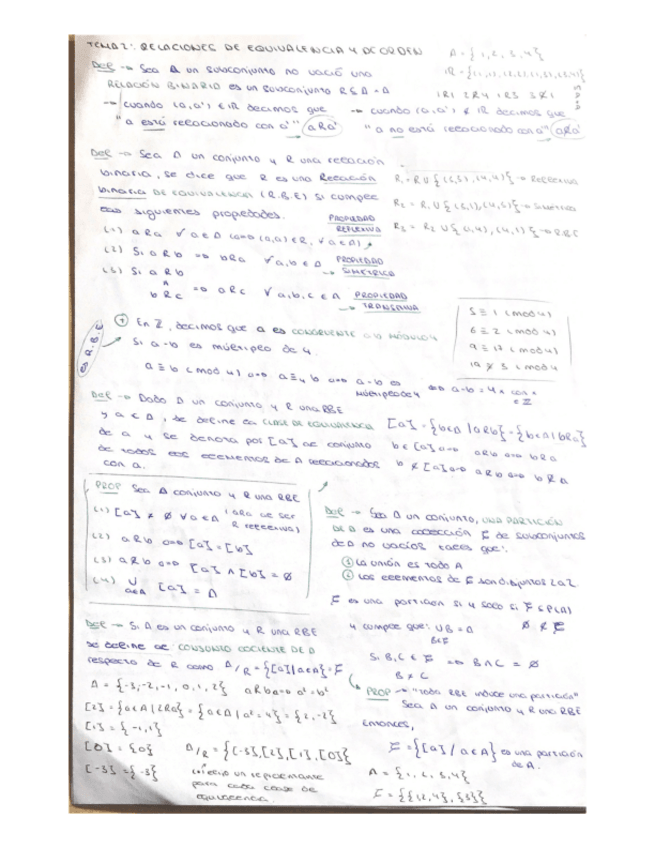 TEMA 2: RELACIONES DE EQUIVALENCIA Y DE ORDEN
A = {1, 2, 3, 4}
DEF → Sea A un subconjunto no vacío una
RELACIÓN BINARIA es un subconjunto R ⊆ A × A
1R1 2R4 1R3 3R̸1
→ cuando (a,a') ∈ R decimos que
"a está relacionado con a'" aRa'
→ cuando (a,a') ∉ R decimos que
"a no está relacionado con a'" aR̸a'
DEF → Sea A un conjunto y R una relación
binaria, se dice que R es una Relación
binaria DE EQUIVALENCIA (R.B.E) si cumple
las siguientes propiedades.
(1) aRa ∀a∈A (⇔ (a,a)∈R, ∀a∈A) PROPIEDAD REFLEXIVA
(2) Si aRb ⇒ bRa ∀a,b∈A PROPIEDAD SIMÉTRICA
(3) Si aRb
∧ ⇒ aRc ∀a,b,c∈A PROPIEDAD
bRc → TRANSITIVA
→ Reflexiva
→ Simétrica
→ R.B.E
es R.B.E
En Z, decimos que a es CONGRUENTE a b MÓDULO 4
Si a-b es múltiplo de 4.
a ≡ b (mod 4) ⇔ a ≡₄ b ⇔ a-b es
múltiplo de 4
5 ≡ 1 (mod 4)
6 ≡ 2 (mod 4)
9 ≡ 17 (mod 4)
DEF → Dado A un conjunto y R una RBE
y a ∈ A, se define la CLASE DE EQUIVALENCIA
de a y se denota por [a] al conjunto
de todos los elementos de A relacionados
con a.
[a] = {b∈A | aRb} = {b∈A | bRa}
b ∈ [a] ⇔ aRb ⇔ bRa
b ∉ [a] ⇔ aR̸b ⇔ bR̸a
PROP Sea A conjunto y R una RBE
(1) [a] ≠ ∅ ∀a∈A (aRa al ser
R reflexiva)
(2) aRb ⇔ [a] = [b]
(3) aR̸b ⇔ [a] ∩ [b] = ∅
(4) ∪ [a] = A
a∈A
DEF → Sea A un conjunto, UNA PARTICIÓN
DE A es una colección F de subconjuntos
de A no vacíos tales que:
① La unión es todo A
② Los elementos de F son disjuntos 2 a 2.
F es una partición si y solo si F ⊆ P(A)
y cumple que: ∪B = A ∅ ∉ F
B∈F
Si B, C ∈ F ⇒ B ∩ C = ∅
B ≠ C
DEF → Si A es un conjunto y R una RBE
se define el CONJUNTO COCIENTE DE A
respecto de R como A/R = {[a] | a∈A} = F
A = {-3, -2, -1, 0, 1, 2} aRb ⇔ a² = b²
[2] = {a∈A | 2Ra} = {a∈A | a² = 4} = {2, -2}
[1] = {-1, 1}
[0] = {0}
[-3] = {-3}
A/R = {[-3], [2], [1], [0]}
para cada clase de
equivalencia.
PROP → "Toda RBE induce una partición"
Sea A un conjunto y R una RBE
entonces,
F = {[a] / a∈A} es una partición
de A.
A = {1, 2, 3, 4}